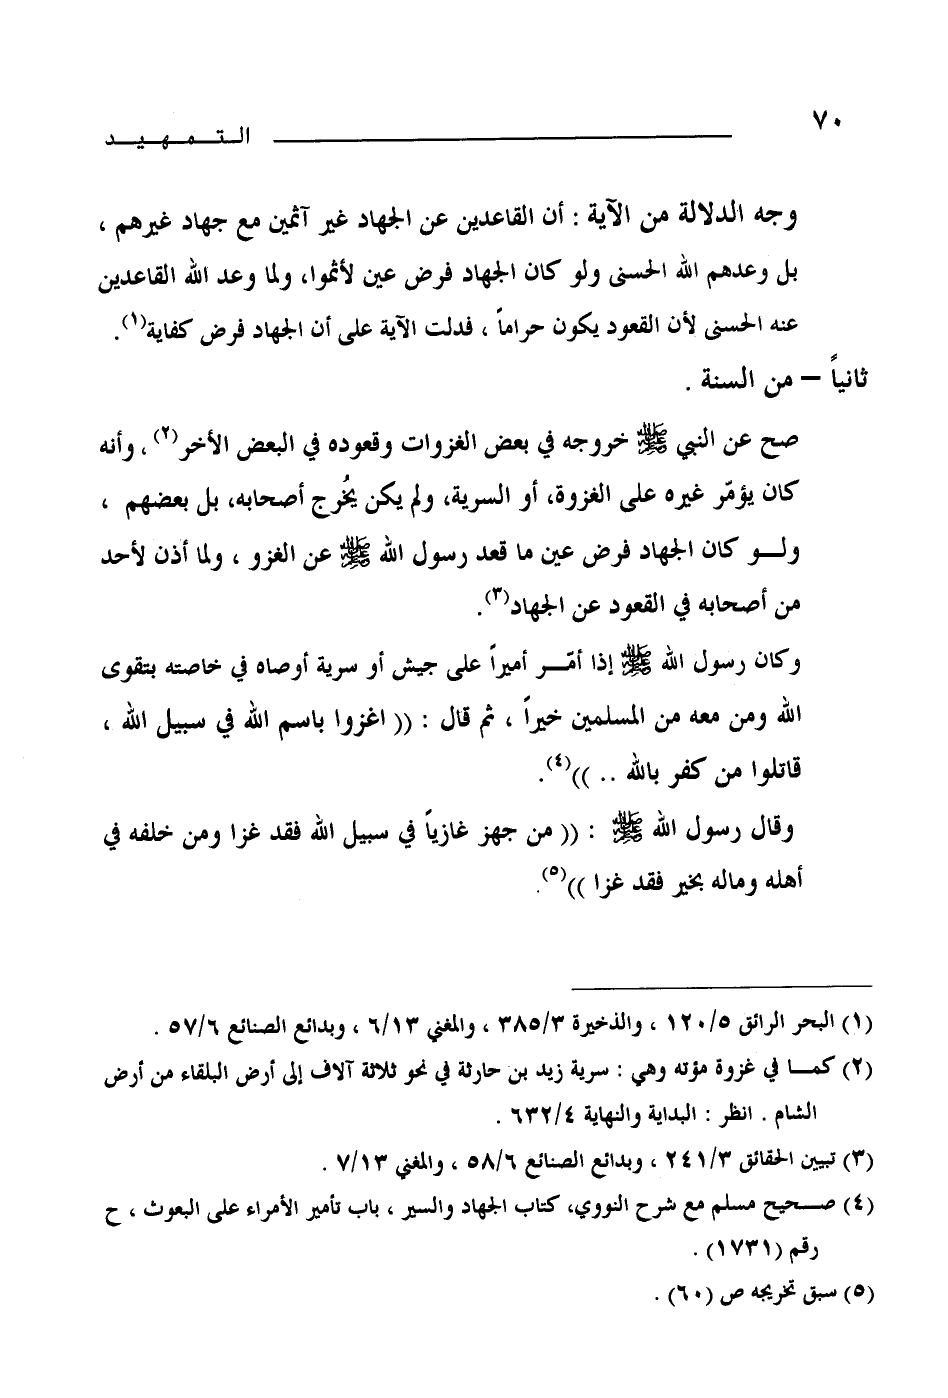 ٧٠
التـمـهـيـد
وجه الدلالة من الآية : أن القاعدين عن الجهاد غير آثمين مع جهاد غيرهم ،
بل وعدهم الله الحسنى ولو كان الجهاد فرض عين لأثموا، ولما وعد الله القاعدين
عنه الحسنى لأن القعود يكون حراماً ، فدلت الآية على أن الجهاد فرض كفاية(١).
ثانياً – من السنة .
صح عن النبي ﷺ خروجه في بعض الغزوات وقعوده في البعض الأخر(٢) ، وأنه
كان يؤمّر غيره على الغزوة، أو السرية، ولم يكن يُخرج أصحابه، بل بعضهم ،
ولـو كان الجهاد فرض عين ما قعد رسول الله ﷺ عن الغزو ، ولما أذن لأحد
من أصحابه في القعود عن الجهاد(٣).
وكان رسول الله ﷺ إذا أمّـر أميراً على جيش أو سرية أوصاه في خاصته بتقوى
الله ومن معه من المسلمين خيراً ، ثم قال : (( اغزوا باسم الله في سبيل الله ،
قاتلوا من كفر بالله .. ))(٤).
وقال رسول الله ﷺ : (( من جهز غازياً في سبيل الله فقد غزا ومن خلفه في
أهله وماله بخير فقد غزا ))(٥).
(١) البحر الرائق ١٢٠/٥ ، والذخيرة ٣٨٥/٣ ، والمغني ٦/١٣ ، وبدائع الصنائع ٥٧/٦ .
(٢) كمـا في غزوة مؤته وهي : سرية زيد بن حارثة في نحو ثلاثة آلاف إلى أرض البلقاء من أرض
الشام . انظر : البداية والنهاية ٦٣٢/٤ .
(٣) تبيين الحقائق ٢٤١/٣ ، وبدائع الصنائع ٥٨/٦ ، والمغني ٧/١٣ .
(٤) صـحيح مسلم مع شرح النووي، كتاب الجهاد والسير ، باب تأمير الأمراء على البعوث ، ح
رقم (١٧٣١) .
(٥) سبق تخريجه ص (٦٠) .